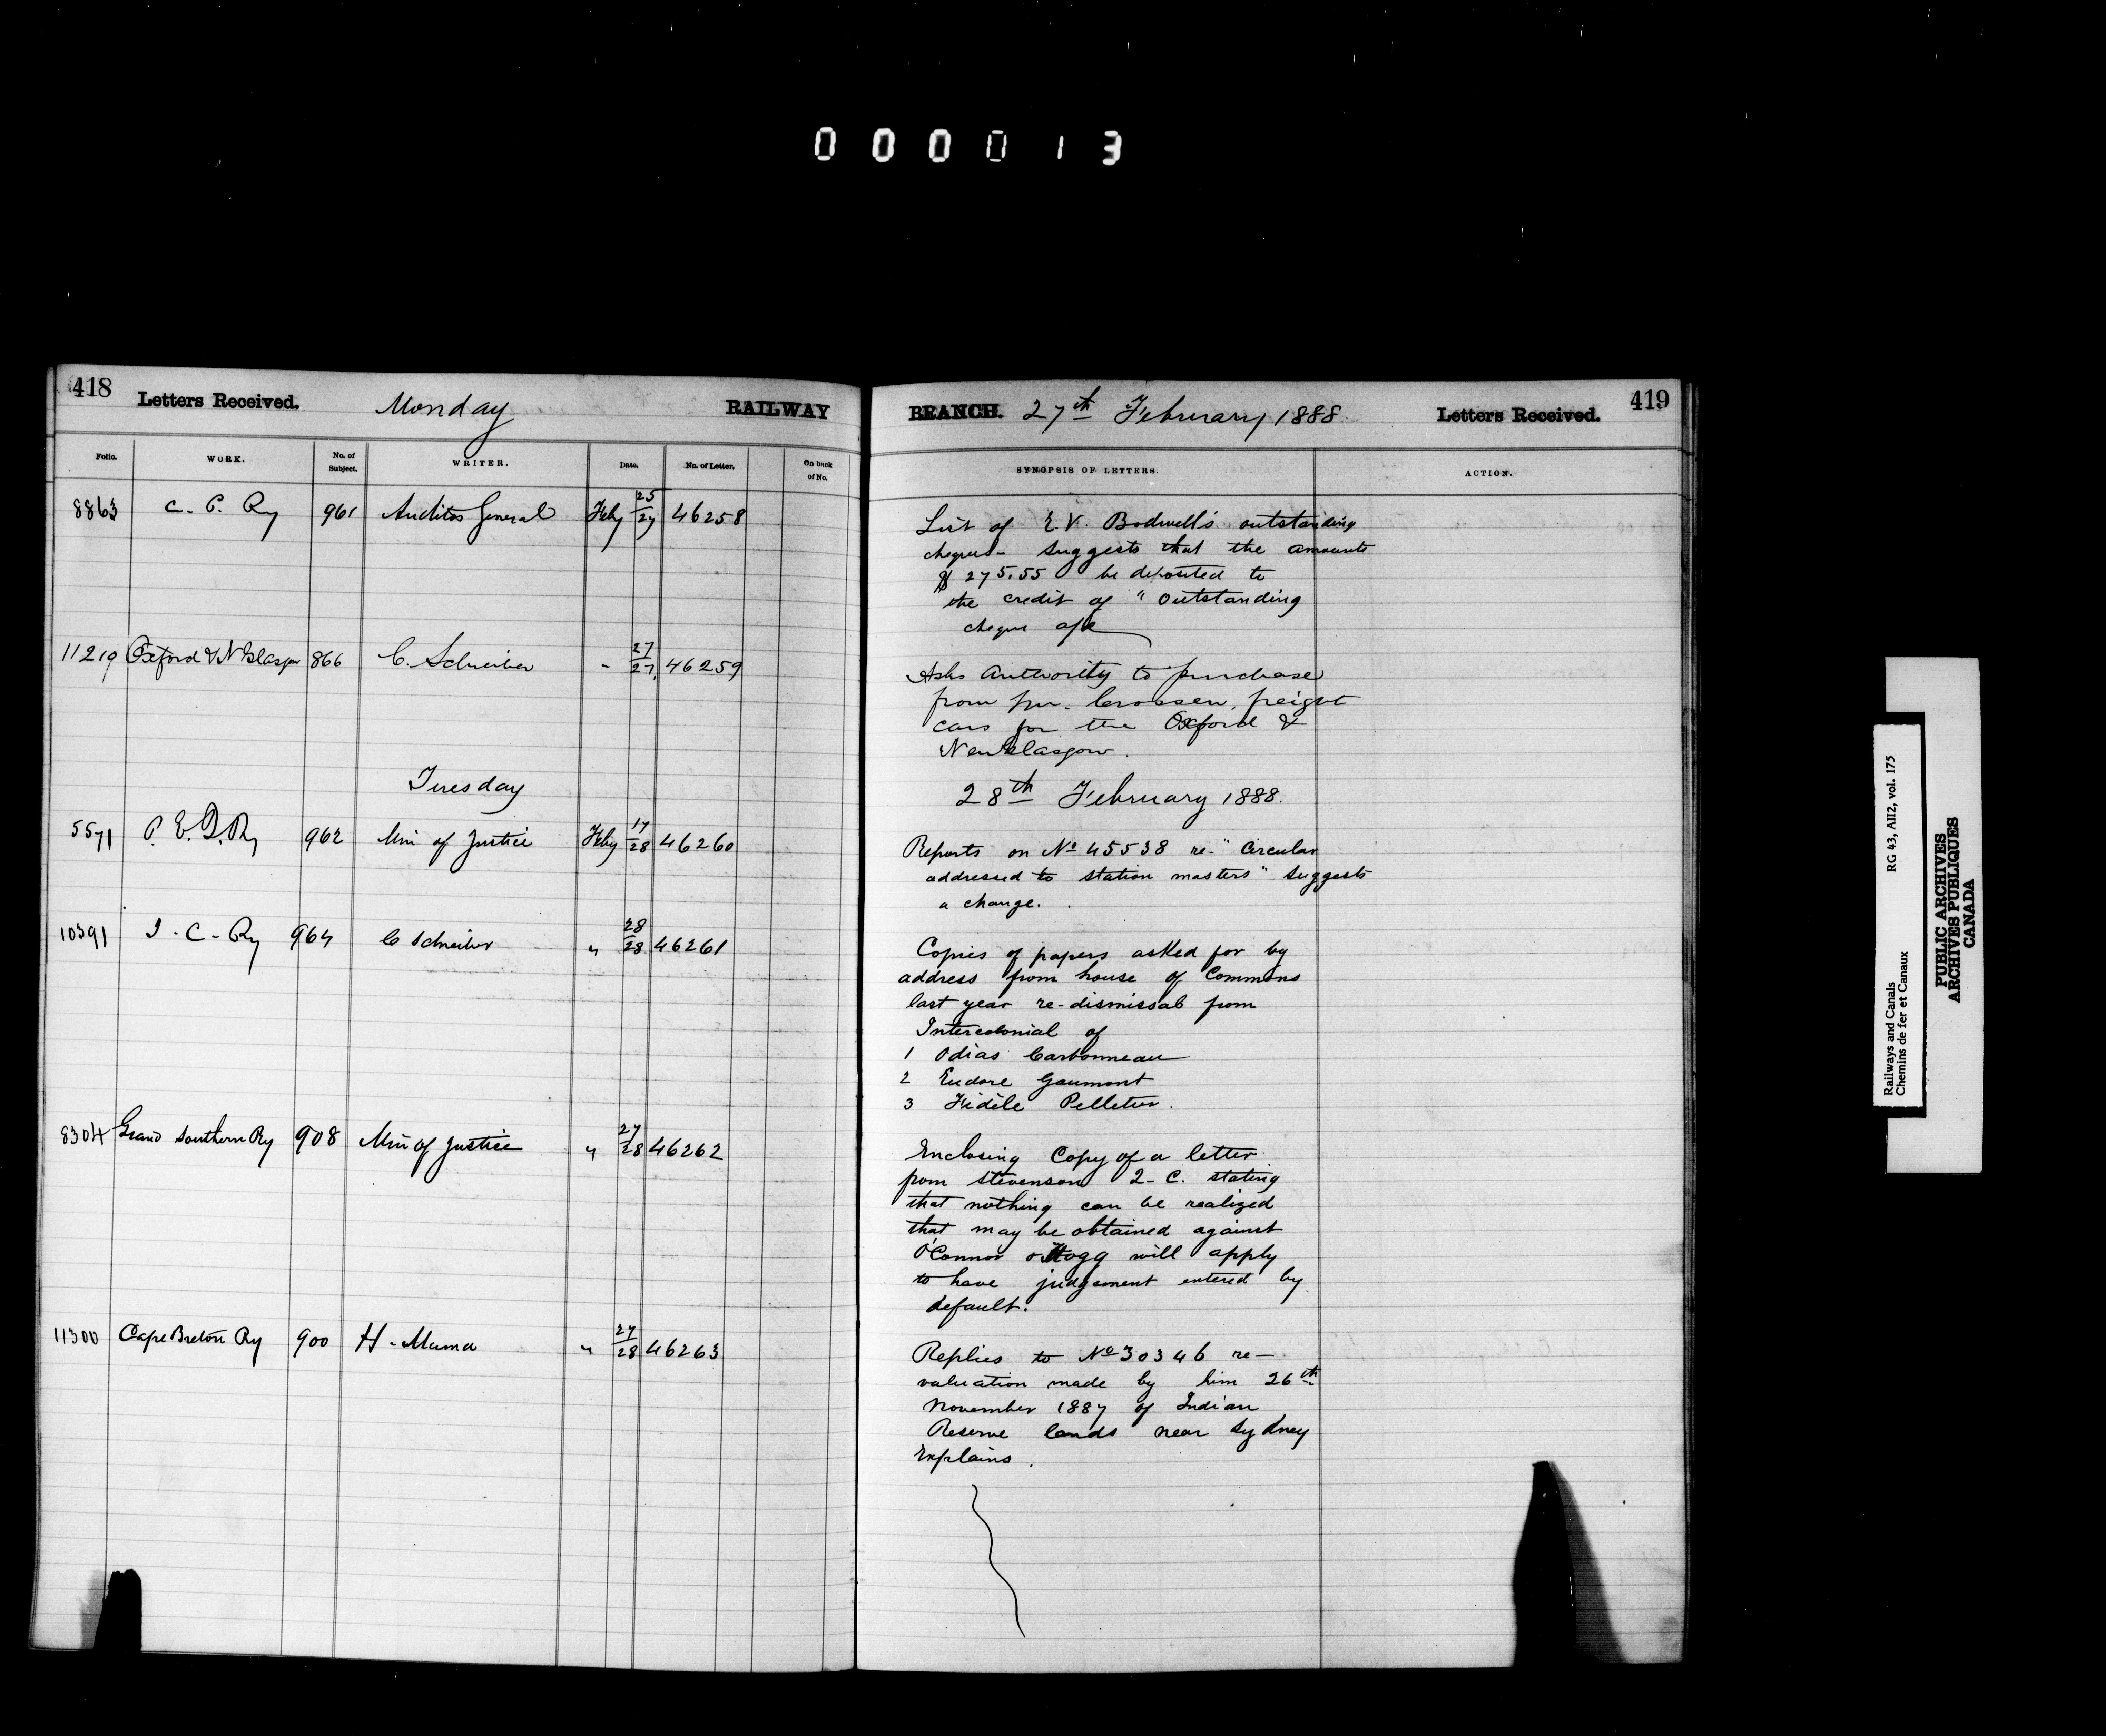 000013
418 Letters Received. Monday RAILWAY
Folio. WORK. No. of Subject. WRITER. Date. No. of Letter. On back of No.
8863 C. P. Ry 961 Auditor General Feby 25/27 46258
11210 Oxford & N Glasgow 866 C. Schreiber " 27/27 46259
Tuesday
5571 P. E. I. Ry 962 Min of Justice Feby 17/28 46260
10391 I. C. Ry 964 C Schreiber " 28/28 46261
8304 Grand Southern Ry 908 Min of Justice " 27/28 46262
11300 Cape Breton Ry 900 H. " 27/28 46263
BRANCH. 27th February 1888. Letters Received. 419
SYNOPSIS OF LETTERS. ACTION.
List of E. V. Bodwell's outstanding
cheques - suggests that the amounts
$275.55 be deposited to
the credit of "Outstanding
cheque a/c
Asks authority to purchase
from Mr. Crossen, freight
cars for the Oxford &
New Glasgow.
28th February 1888.
Reports on No 45538 re "Circular
addressed to station masters" suggests
a change.
Copies of papers asked for by
address from house of Commons
last year re-dismissal from
Intercolonial of
1 Odias Carbonneau
2 Eudore Gaumont
3 Fidèle Pelletier.
Enclosing Copy of a letter
from Stevenson Q. C. stating
that nothing can be realized
that may be obtained against
O'Connor & Hogg will apply
to have judgement entered by
default.
Replies to No 30346 re-
valuation made by him 26th
November 1887 of Indian
Reserve lands near Sydney
Explains.
Railways and Canals RG 43, AII2, vol. 175
Chemins de fer et Canaux
PUBLIC ARCHIVES
ARCHIVES PUBLIQUES
CANADA